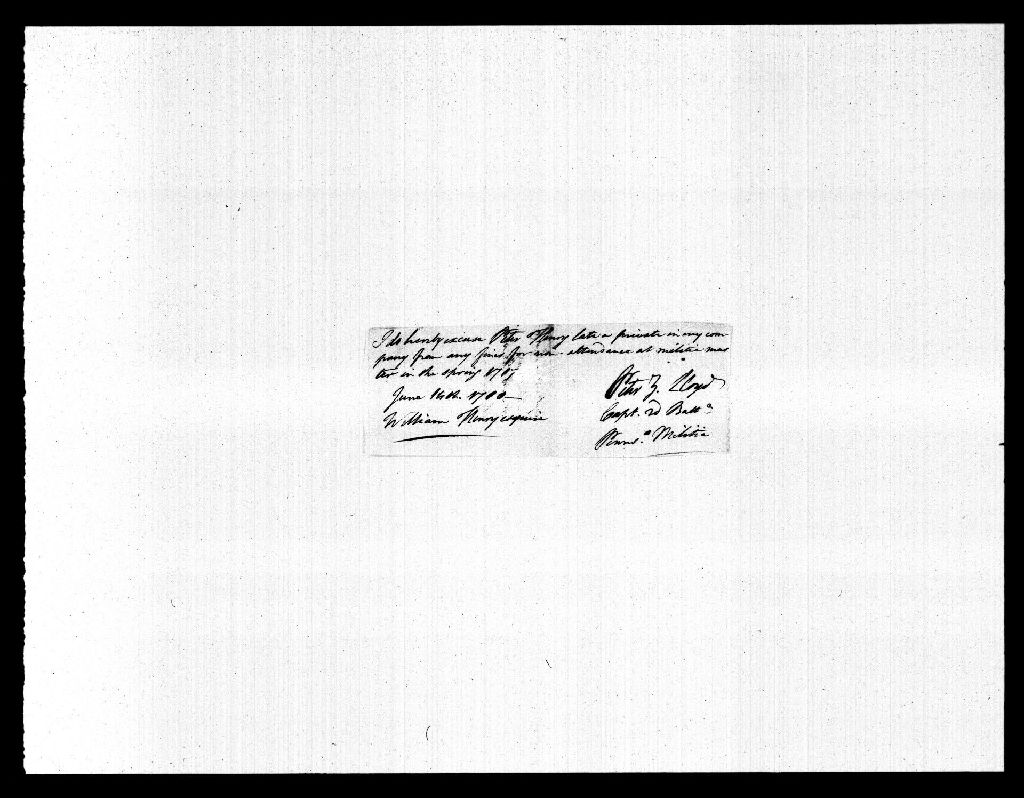 I do hereby excuse Peter Henry late a private in my com
pany from any fines for non attendance at militia mus
ter in the spring 1787
June 14th 1788
William Henry esquire
Peter Z. Lloyd
Capt. 2d Batt.n
Penns.a Militia